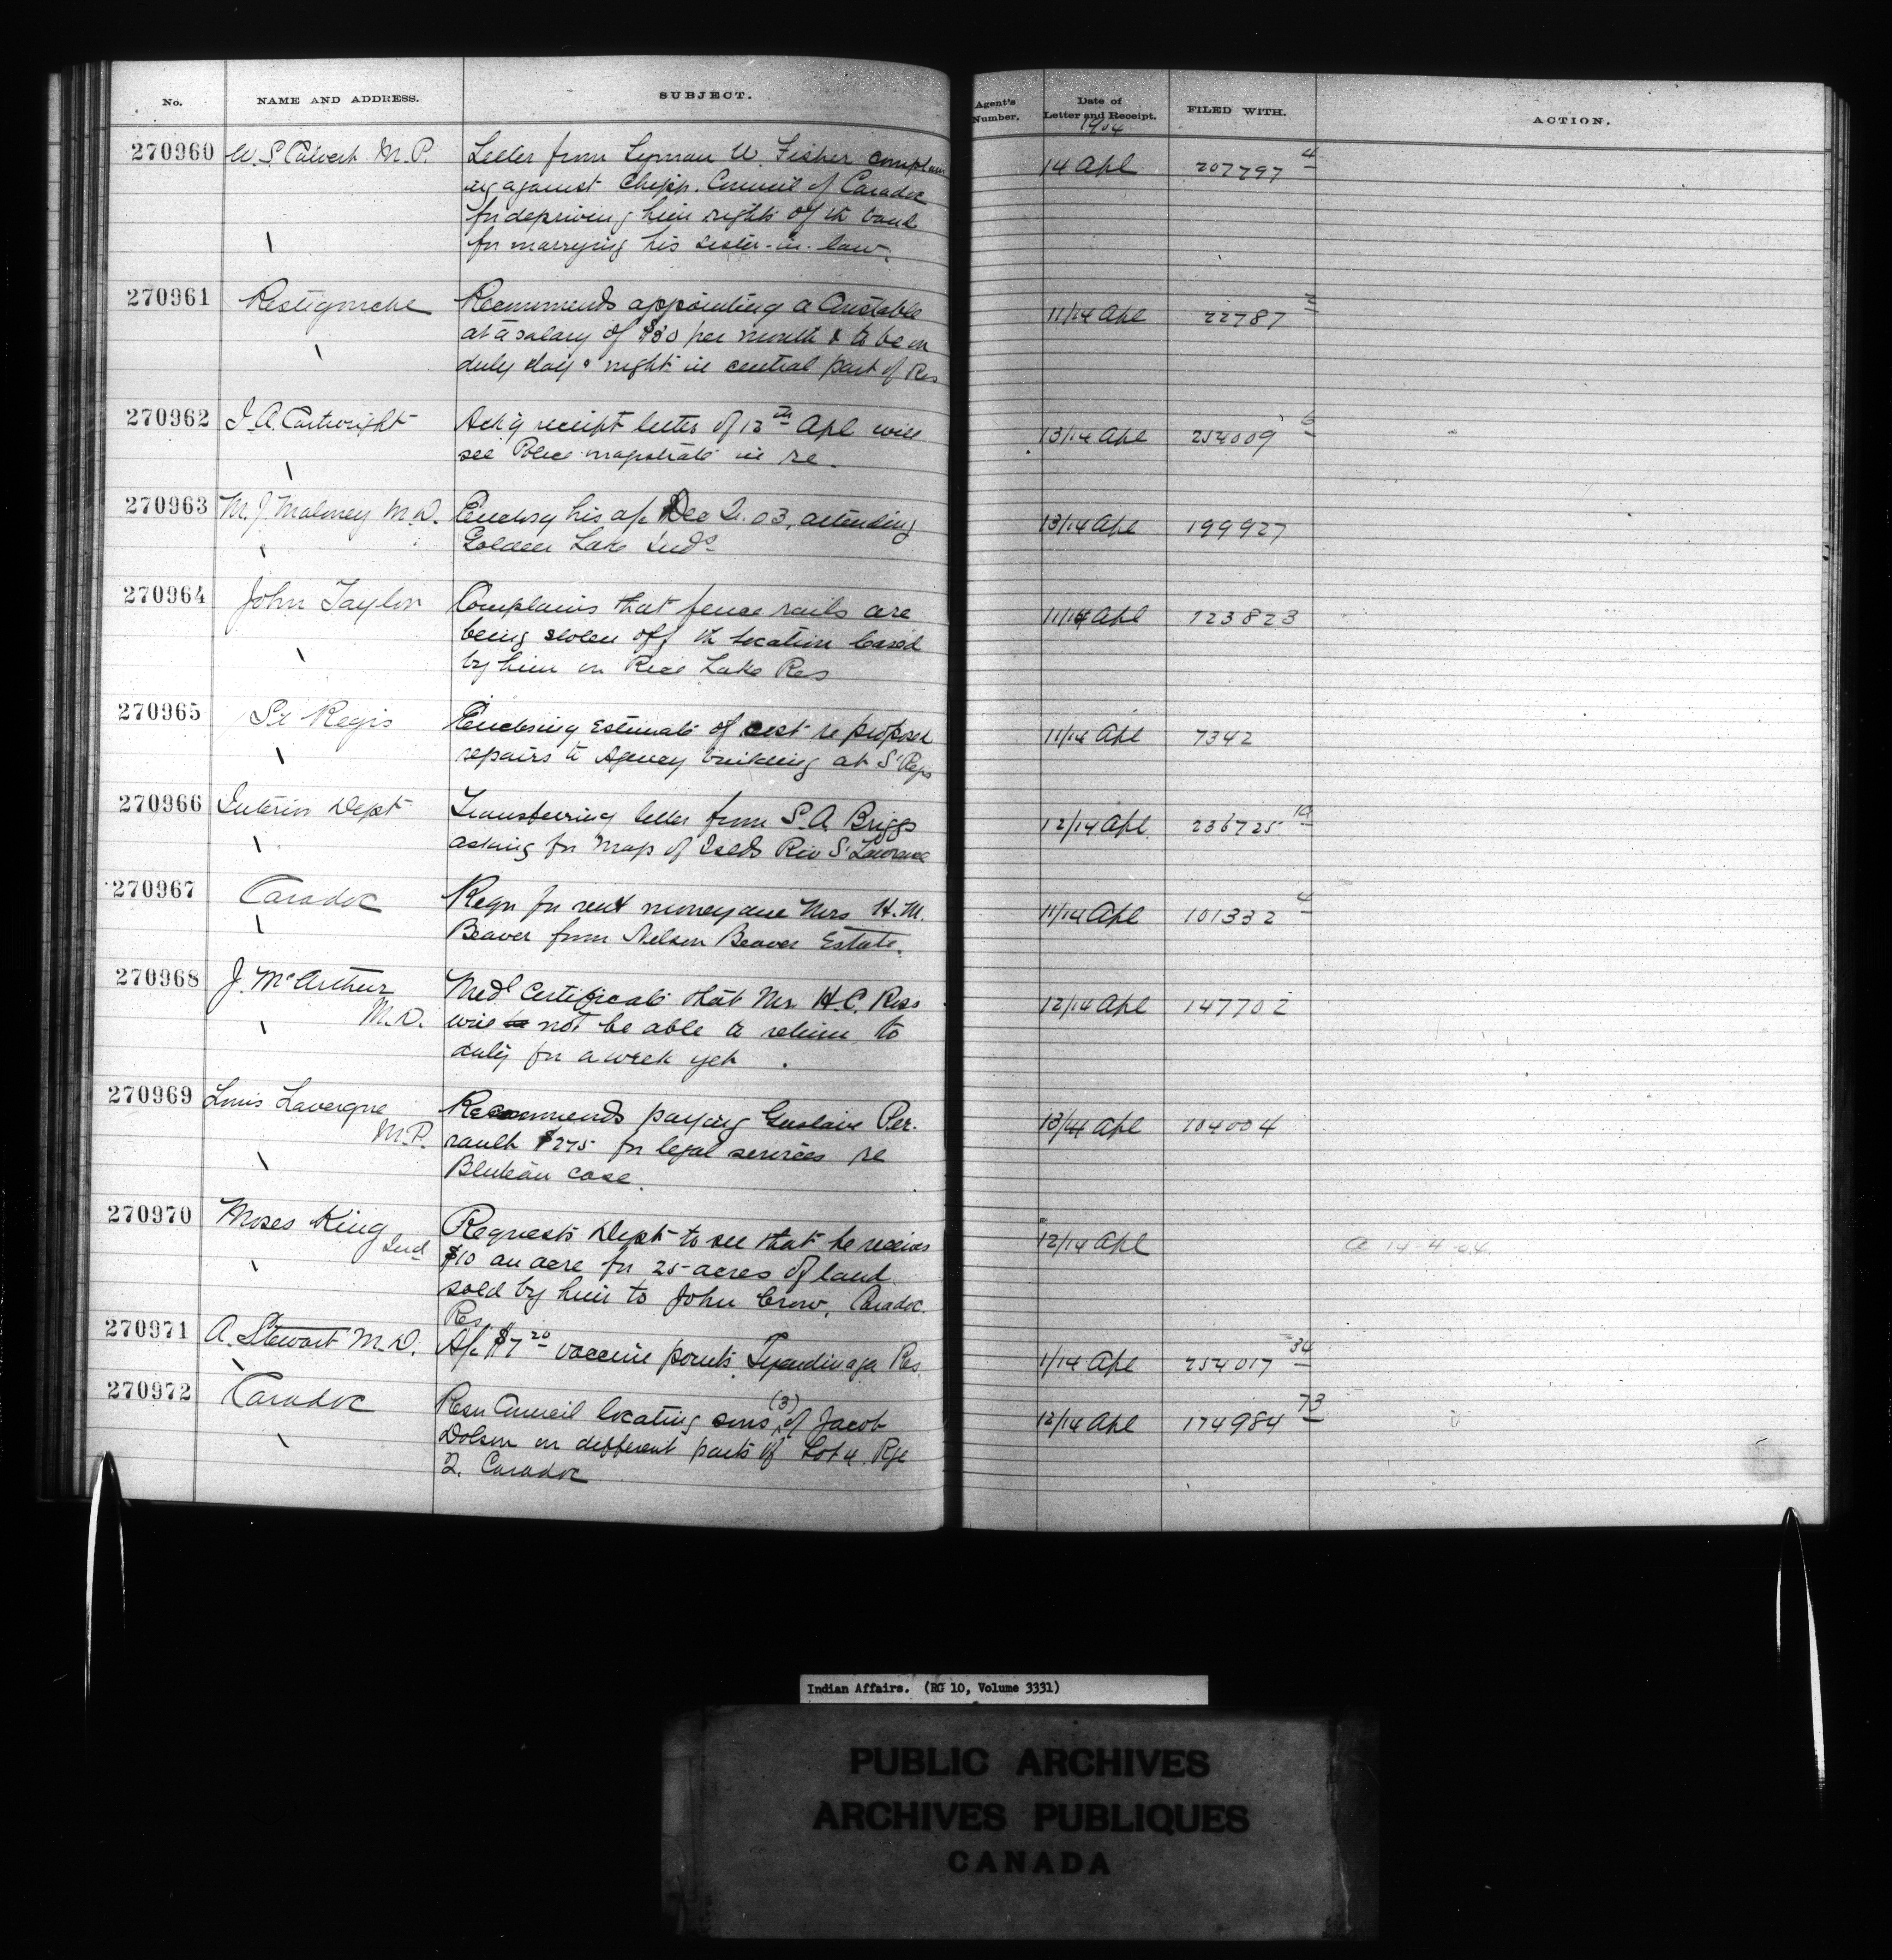 No. NAME AND ADDRESS. SUBJECT. Agent's Number. Date of Letter and Receipt. FILED WITH. ACTION.
1904
270960 W. S. Calvert M.P. Letter from Lyman W. Fisher complain 14 Apl 207797 4
ing against Chipp. Council of Caradoc
for depriving him rights of th band
for marrying his sister-in-law.
270961 Restigouche Recommends appointing a Constable 11/14 Apl 22787
at a salary of $30 per month & to be on
duty day & night in central part of Res
270962 J. A. Cartwright Ack'g receipt letter of 13th Apl will 13/14 Apl 254009 6
see Police magistrate in re.
270963 M. J. Maloney M.D. Enclosg his a/c Dec Q. 03, attending 13/14 Apl 199927
Golden Lake Inds
270964 John Taylor Complains that fence rails are 11/14 Apl 123823
being stolen off th location leased
by him on Rice Lake Res
270965 St Regis Enclosing Estimate of cost re proposed 11/14 Apl 7342
repairs to Agency building at St Regis
270966 Interior Dept Transferring letter from S. A. Briggs 12/14 Apl. 236725 19
asking for Map of Islds Riv St Lawrence
270967 Caradoc Reqn for rent money due Mrs H. M. 11/14 Apl 101332 4
Beaver from Nelson Beaver Estate.
270968 J. McArthur Medl Certificate that Mr. H.C. Ross 12/14 Apl 147702
M.D. will not be able to return to
duty for a week yet.
270969 Louis Lavergne Recommends paying Gustave Per- 13/14 Apl 104004
M.P. rault $275 for legal services re
case.
270970 Moses King Requests Dept to see that he receives 12/14 Apl a 14-4-04.
Ind $10 an acre for 25 acres of land
sold by him to John Crow, Caradoc.
Res.
270971 A. Stewart M.D. A/c $7 20 vaccine points Tyendinaga Res 1/14 Apl 254017 34
270972 Caradoc Resn Council locating sons (3) of Jacob 12/14 Apl 174984 73
Dolson on different parts of Lot 4 Rge
2. Caradoc
Indian Affairs. (RG 10, Volume 3331)
PUBLIC ARCHIVES
ARCHIVES PUBLIQUES
CANADA